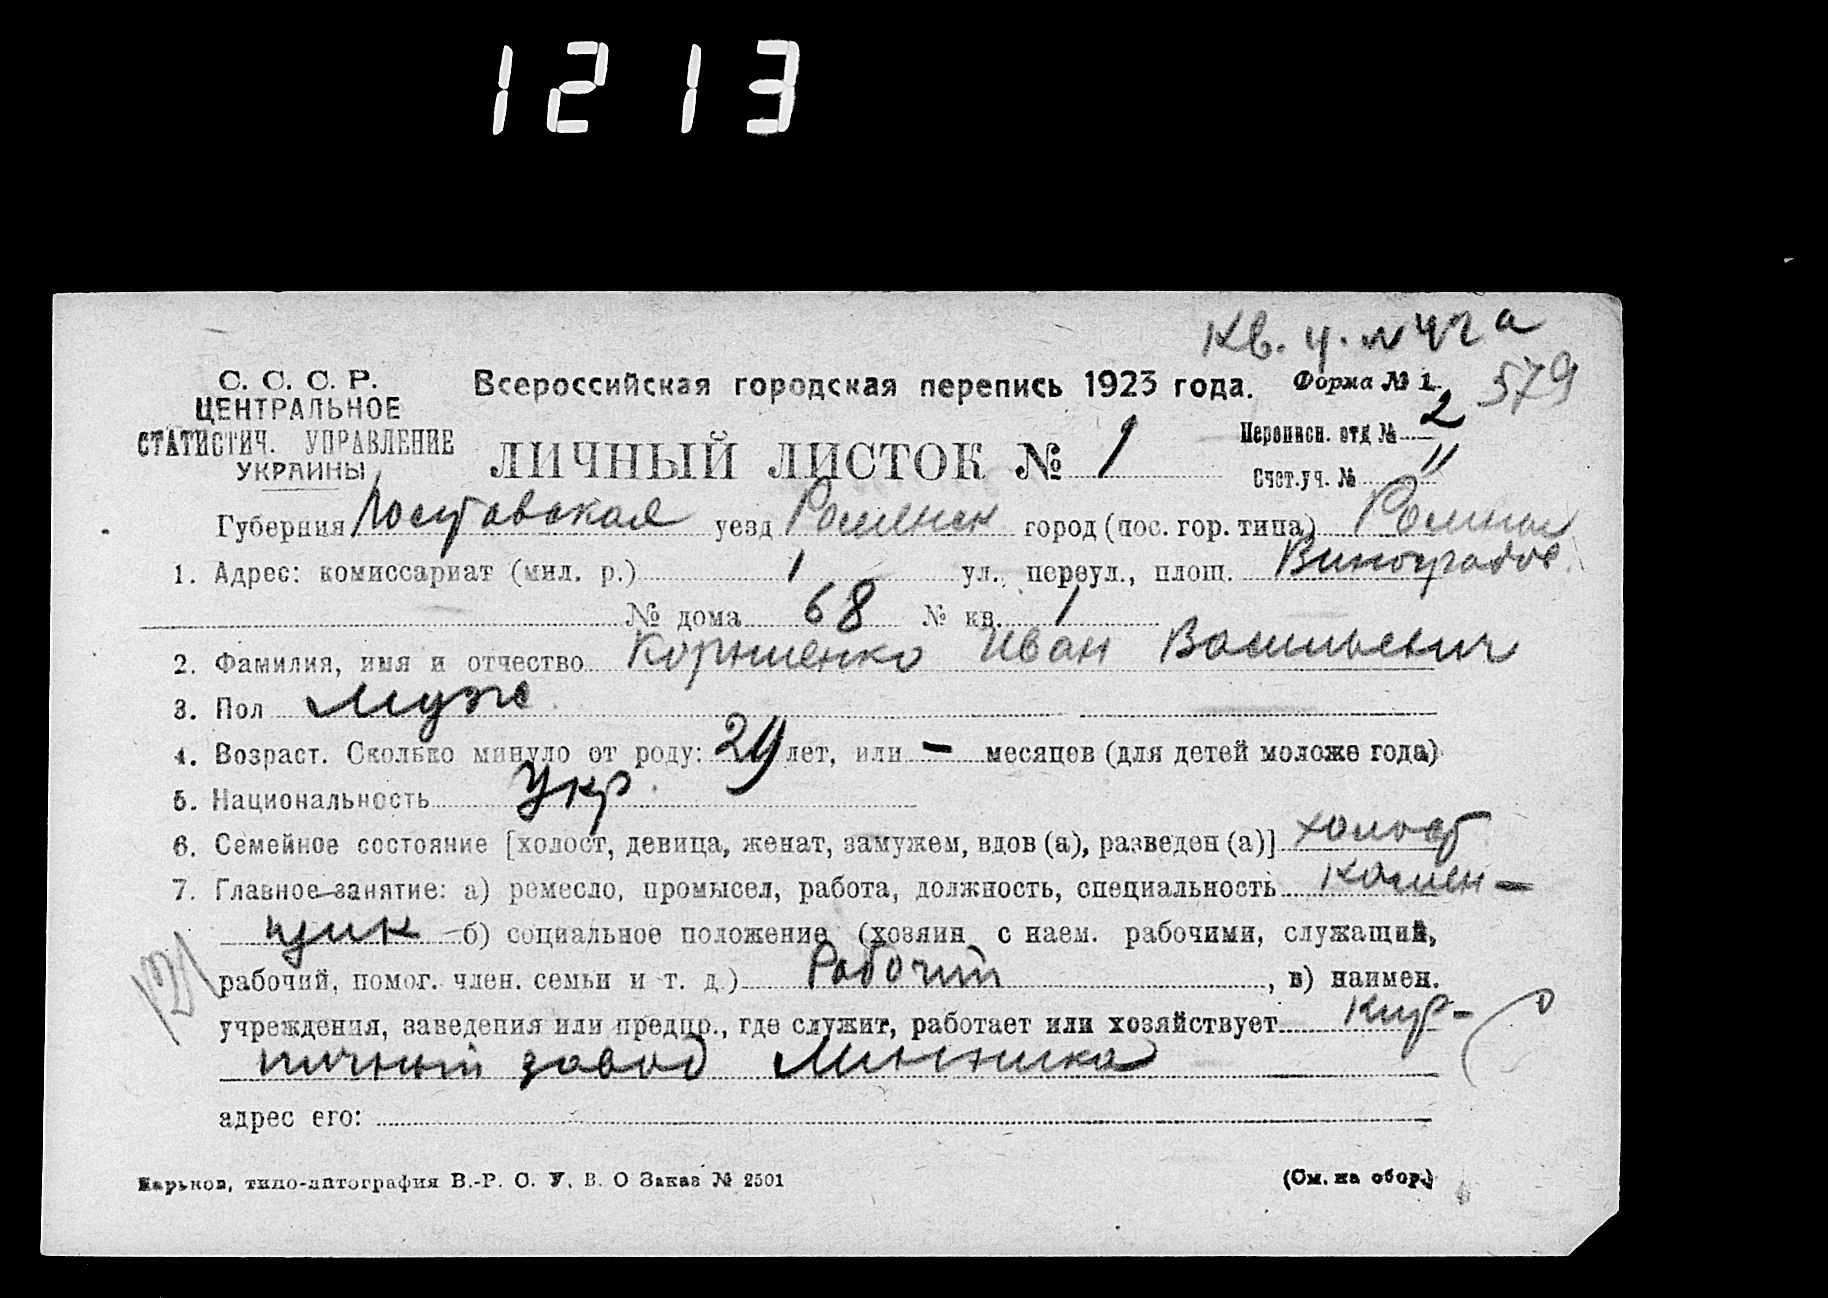 1213
Кв. ч. № 42 а
579
С. С. С. Р.
ЦЕНТРАЛЬНОЕ
СТАТИСТИЧ. УПРАВЛЕНИЕ
УКРАИНЫ
Всероссийская городская перепись 1923 года. Форма № 1.
ЛИЧНЫЙ ЛИСТОК № 1
Переписн. отд № 2
Счет.уч. № 11
Губерния Полтавская уезд Роменск город (пос. гор. типа) Ромны
1. Адрес: комиссариат (мил. р.) 1 ул., переул., площ. Виноградов.
№ дома 68 № кв. 1
2. Фамилия, имя и отчество Иван Васильевич
3. Пол Муж
4. Возраст. Сколько минуло от роду: 29 лет, или — месяцев (для детей моложе года)
5. Национальность Укр.
6. Семейное состояние [холост, девица, женат, замужем, вдов (а), разведен (а)] холост
7. Главное занятие: а) ремесло, промысел, работа, должность, специальность Камен-
щик б) социальное положение (хозяин с наем. рабочими, служащий,
121
рабочий, помог. член. семьи и т. д.) Рабочий, в) наимен.
учреждения, заведения или предпр., где служит, работает или хозяйствует Кир-
пичный завод
адрес его:
Харьков, типо-литография В.-Р. С. У. В. О Заказ № 2501
(См. на обор.)